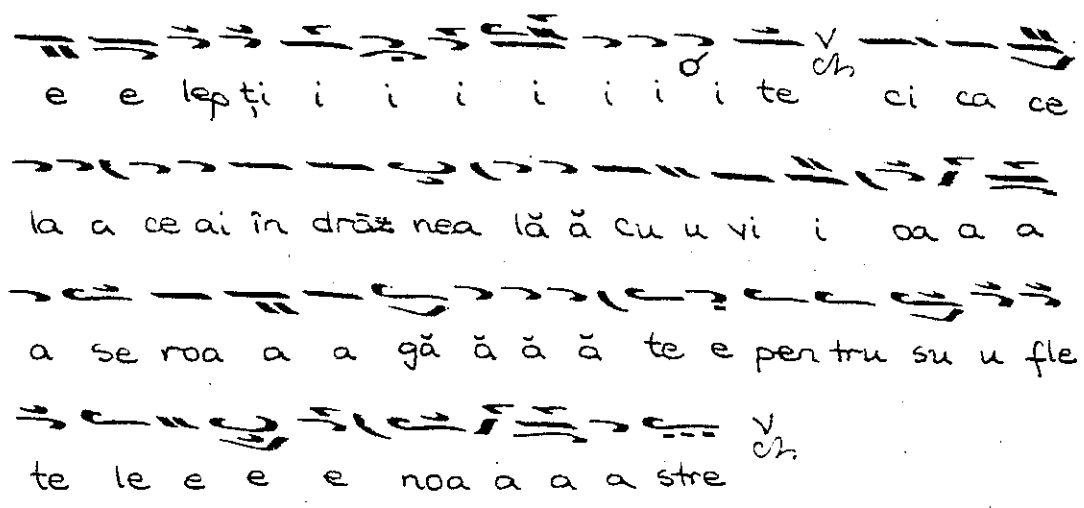 e e lep ți i i i i i i i te ci ca ce
la a ce ai în drăz nea lă ă cu u vi i oa a a
a se roa a a gă ă ă ă te e pen tru su u fle
te le e e e noa a a a stre